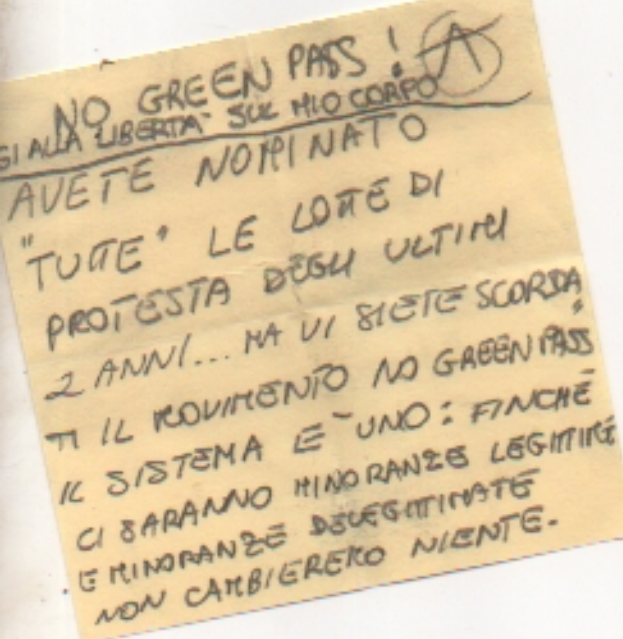 NO GREEN PASS! A
SI ALLA LIBERTA' SUL MIO CORPO
AVETE NOMINATO
"TUTTE" LE LOTTE DI
PROTESTA DEGLI ULTIMI
2 ANNI... MA VI SIETE SCORDA
TI IL MOVIMENTO NO GREEN PASS
IL SISTEMA E' UNO: FINCHÉ
CI SARANNO MINORANZE LEGITTIME
E MINORANZE DELEGITTIMATE
NON CAMBIEREMO NIENTE.